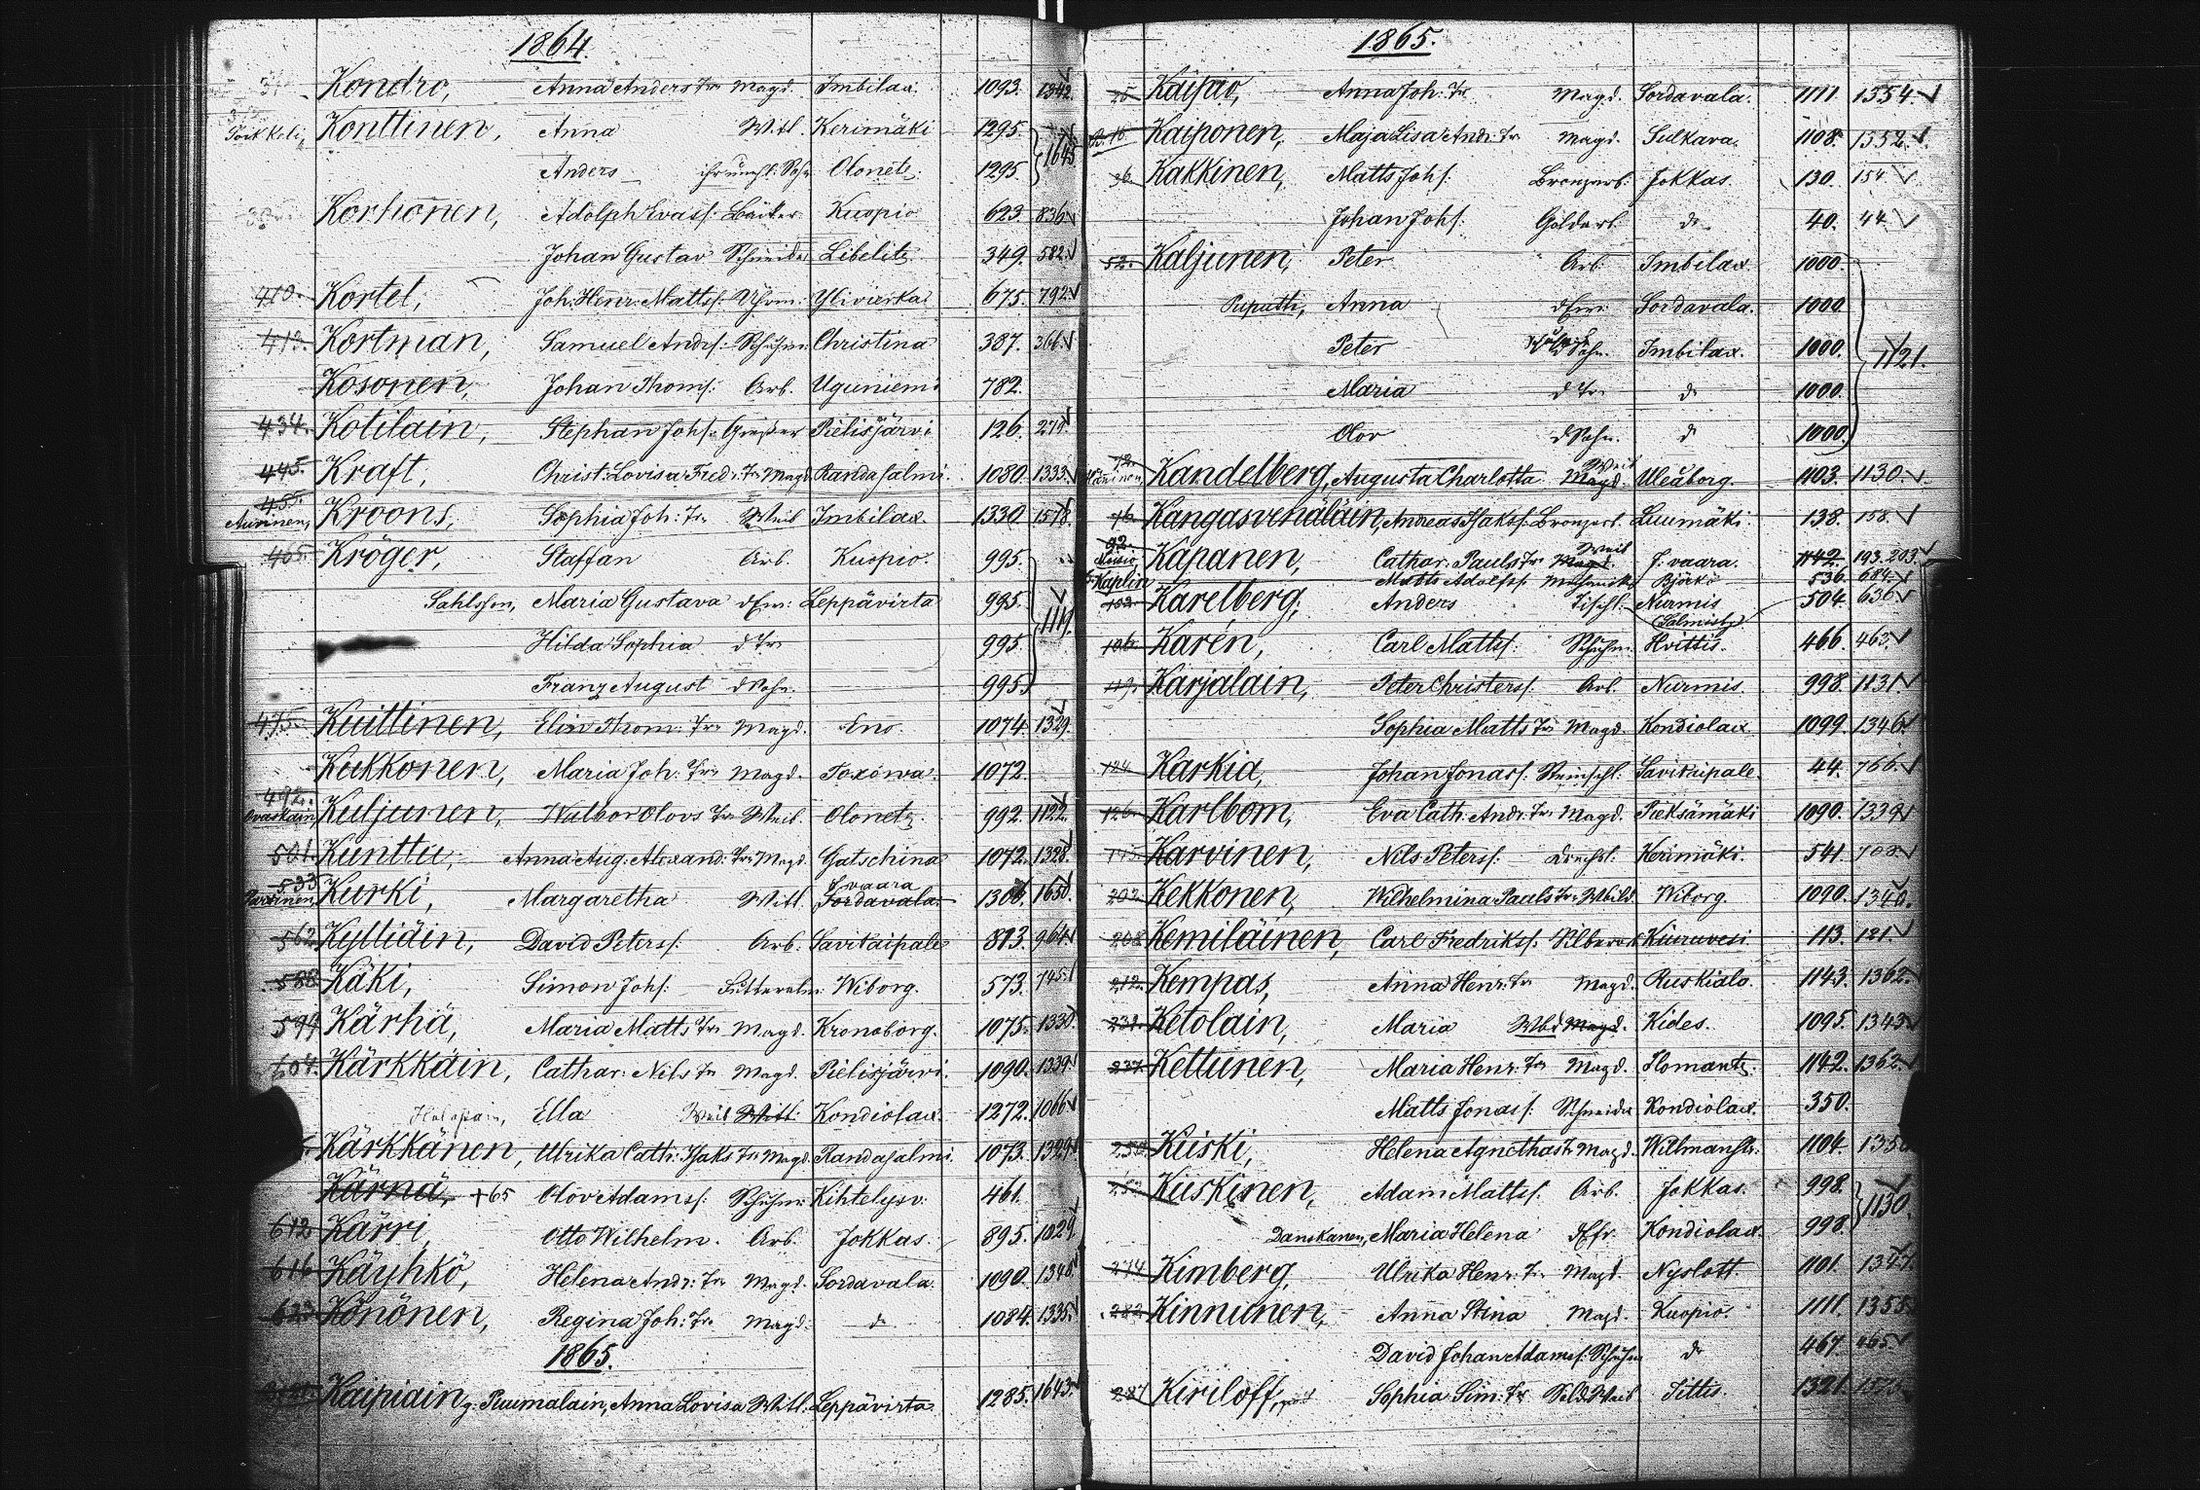 1864.
Kondro, Anna Anders Tr. Magd. Imbilax. 1093. 1342.
Konttinen, Anna Witt. Kerimäki 1295.
Anders Olonetz. 1295 1645
Korhonen, Adolph Evass: Bäcker Kuopio 623. 836
Johan Gustav Schneider Libelitz. 349. 582.
410. Kortel, Joh: Henr: Matts: Uhrm: Ylivieska 675. 792
413. Kortman, Samuel Andrs: Schuhm: Christina 387. 366
Kosonen, Johan Thoms: Arb. Uguniemi 782.
434. Kotilain, Stephan Johs: Giesser Pielisjärvi 126. 219.
445. Kraft, Christ: Lovisa Fredr: Tr. Magd. Randasalmi. 1080. 1333
455. Auvinen, Kroons, Sophia Joh: Tr. Weib Imbilax. 1330 1578.
465. Kröger, Staffan Arb. Kuopio. 995.
Sahlssen, Maria Gustava d Em: Leppävirta 995. 1119.
Hilda Sophia d Tr. 995.
Franz August d Sohn. 995.
475. Kuittinen, Elin Thom: Tr. Magd. Eno. 1074. 1329.
Kukkonen, Maria Joh: Tr. Magd. Toxowa. 1072.
492. Ovaskain, Kuljunen, Walbor Olovs Tr. Weib. Olonetz. 992. 1122.
501. Kunttu, Anna Aug. Alexand: Tr. Magd. Gatschina 1072. 1328.
533 Kurki, Margaretha Witt. J. vaara Sordavala. 1306. 1650.
562 Kylliäin, David Peterss: Arb. Savitaipale 813. 964
588 Käki, Simon Johs: Futteralm: Wiborg. 573. 745.
594 Kärhä, Maria Matts Tr. Magd. Kronoborg. 1075. 1330.
604. Kärkkäin, Cathar: Nils Tr. Magd. Pielisjärvi. 1090. 1339
Ella Weib Witt. Kondiolax. 1272. 1066
Kärkkänen, Ulrika Cath: Isaks Tr. Magd. Randasalmi. 1073. 1329
Kärnä, +65 Olov Adamss: Schuhm: Kihtelysv: 461.
612 Kärri, Otto Wilhelm. Arb. Jokkas. 895. 1029
616 Käyhkö, Helena Andr: Tr. Magd. Sordavala. 1090. 1340
Könönen, Regina Joh: Tr. Magd. do 1084. 1335.
1865.
Kaipiain g. Ruumalain, Anna Lovisa Witt. Leppävirta 1285. 1643.
1865.
Anna Joh: Tr. Magd. Sordavala. 1111. 1354.
Kaiponen, Maja Lisa Andr: Tr. Magd. Sulkava. 1108. 1352.
36. Kakkinen, Matts Johs: Bronzarb: Jokkas. 130. 154
Johan Johs: Goldarb. do 40. 44.
52. Kaljunen, Peter Arb. Imbilax 1000.
Puputti, Anna d Em: Sordavala. 1000.
Peter d Sohn. Imbilax. 1000. 1121.
Maria d Tr. d 1000.
Olov d Sohn. d 1000
72. Kandelberg, Augusta Charlotta Weib Magd. Uleåborg. 1103. 1130.
76. Kangasvenäläin, Andreas Isaks: Bronzarb. Luumäki. 138. 158.
92. Kapanen, Cathar. Pauls Tr. Weib Magd. J. vaara. 1142. 193.203
Kaplin Matts Adolfss. Björkö 536. 684.
102. Karelberg, Anders Tischl: Nurmis (Salmis) 504. 636
106. Karén, Carl Matts: Schuhm: Hvittis. 466. 463
119. Karjalain, Peter Christers: Arb. Nurmis. 998. 1131
Sophia Matts Tr. Magd. Kondiolax 1099. 1346
124. Karkia, Johan Jonass: Steinschl: Savitaipale. 44. 766.
126. Karlbom, Eva Cath: Andr: Tr. Magd. Pieksämäki 1090. 1339
Karvinen, Nils Peters: Drechsl: Kerimäki. 541. 708.
202. Kekkonen, Wilhelmina Pauls Tr. Wbild. Wiborg. 1090. 1340.
208 Kemiläinen, Carl Fredrikss: Silberarb Kiuruvesi 113. 121.
212. Kempas, Anna Henr: Tr. Magd. Ruskiala. 1143. 1362.
231. Ketolain, Maria Wbd Magd. Kides. 1095. 1343
237. Kettunen, Maria Henr: Tr. Magd. Ilomantz. 1142. 1362.
Matts Jonass: Schneider Kondiolax. 350.
250 Kiiski, Helena Agnetha Tr. Magd. Willmanstr. 1104.
252 Kiiskinen, Adam Matts: Arb. Jokkas. 998. 1130.
Danskanen, Maria Helena d fr. Kondiolax. 998.
274 Kimberg, Ulrika Henr: Tr. Magd. Nyslott. 1101. 1347.
282 Kinnunen, Anna Stina Magd. Kuopio. 1111. 1355
David Johan Adamss: Schuhm do 467. 465.
287 Kiriloff, Sophia Sim: Tr. Sold. Weib Tittis. 1321.